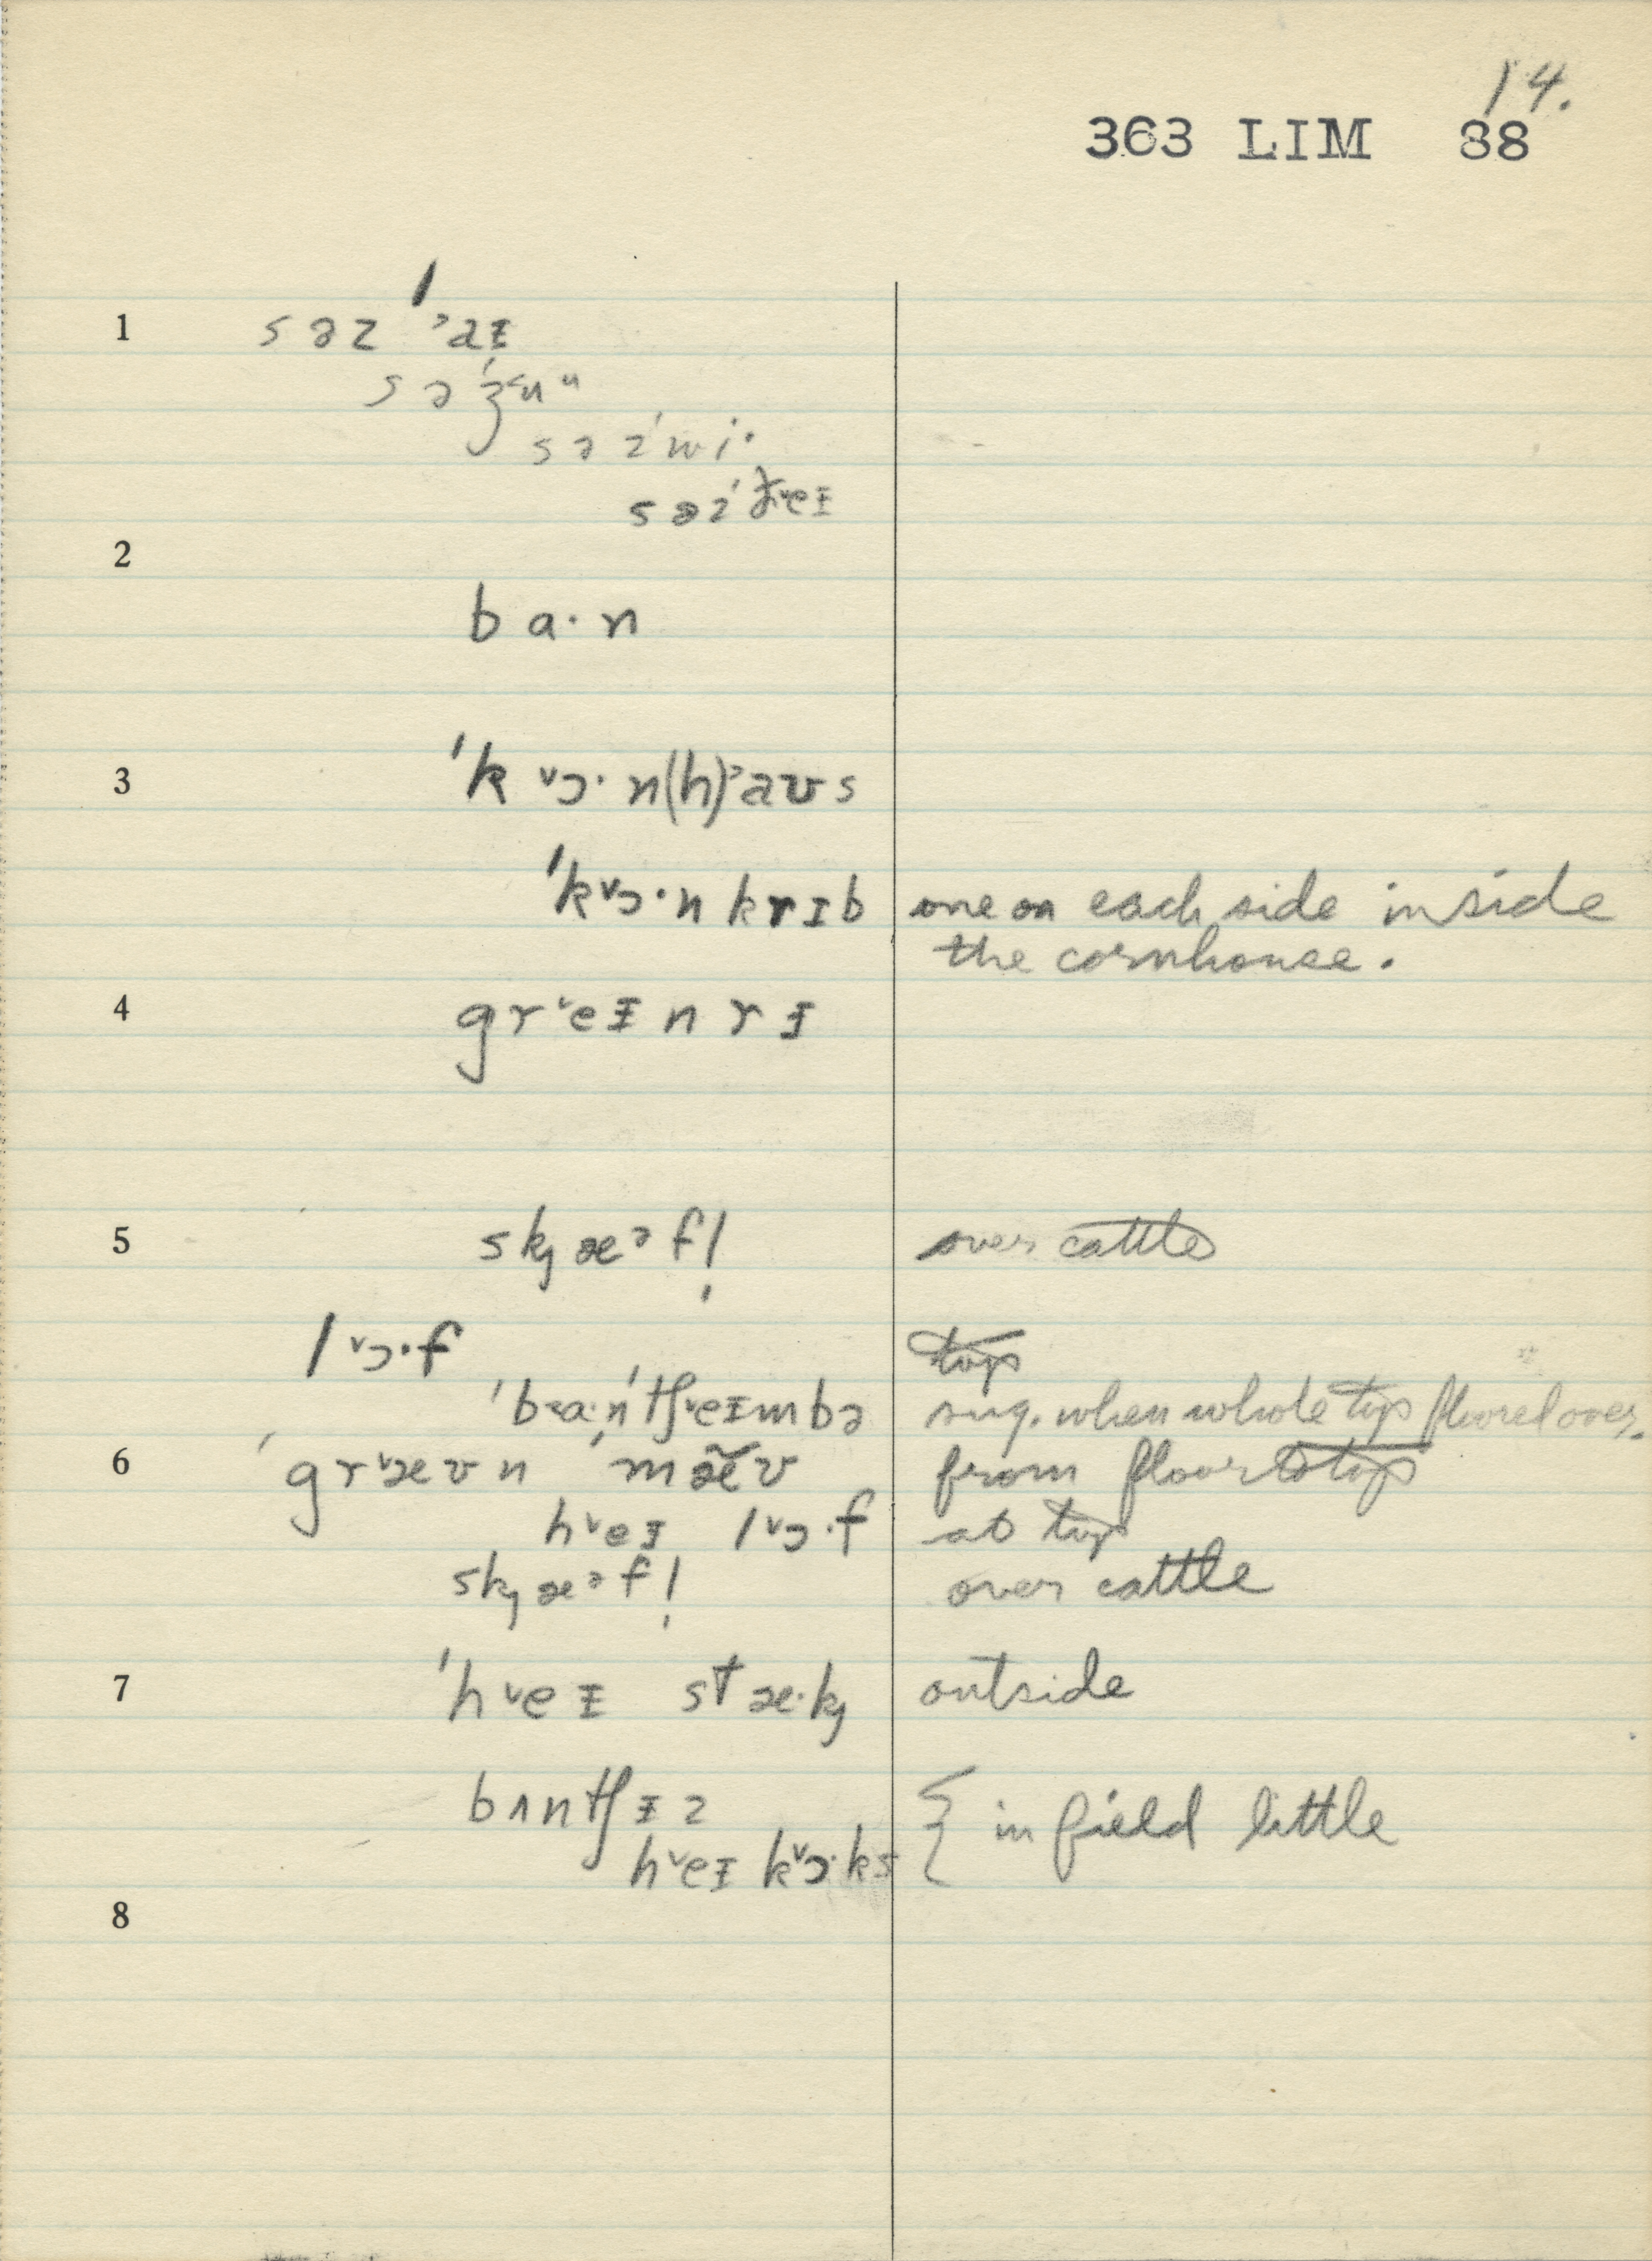 14.
363 LIM 88
1 səz ˈ˒aɪ
sə ˈʒ˂ʉᵘ
səzˈwi·
səzˈðˇeɪ
2
ba·n
3 ˈkˇɔ·n(h)˒aʊs
ˈkˇɔ·nkrɪb one on each side inside
the cornhouse.
4 grˇeɪnrɪ
5 skj æᵊf! over cattle
lˇɔ·f top
ˈb˂a·nˈtʃˇeɪmbə sug. when whole top floored over.
6 ˈgrˇæʊn ˈmæ̃ʊ from floor to top
hˇeɪ lˇɔ·f at top
skj æᵊf! over cattle
7 ˈhˇeɪ stæ·kj outside
bʌntʃɪz
hˇeɪ kˇɔ·ks { in field little
8